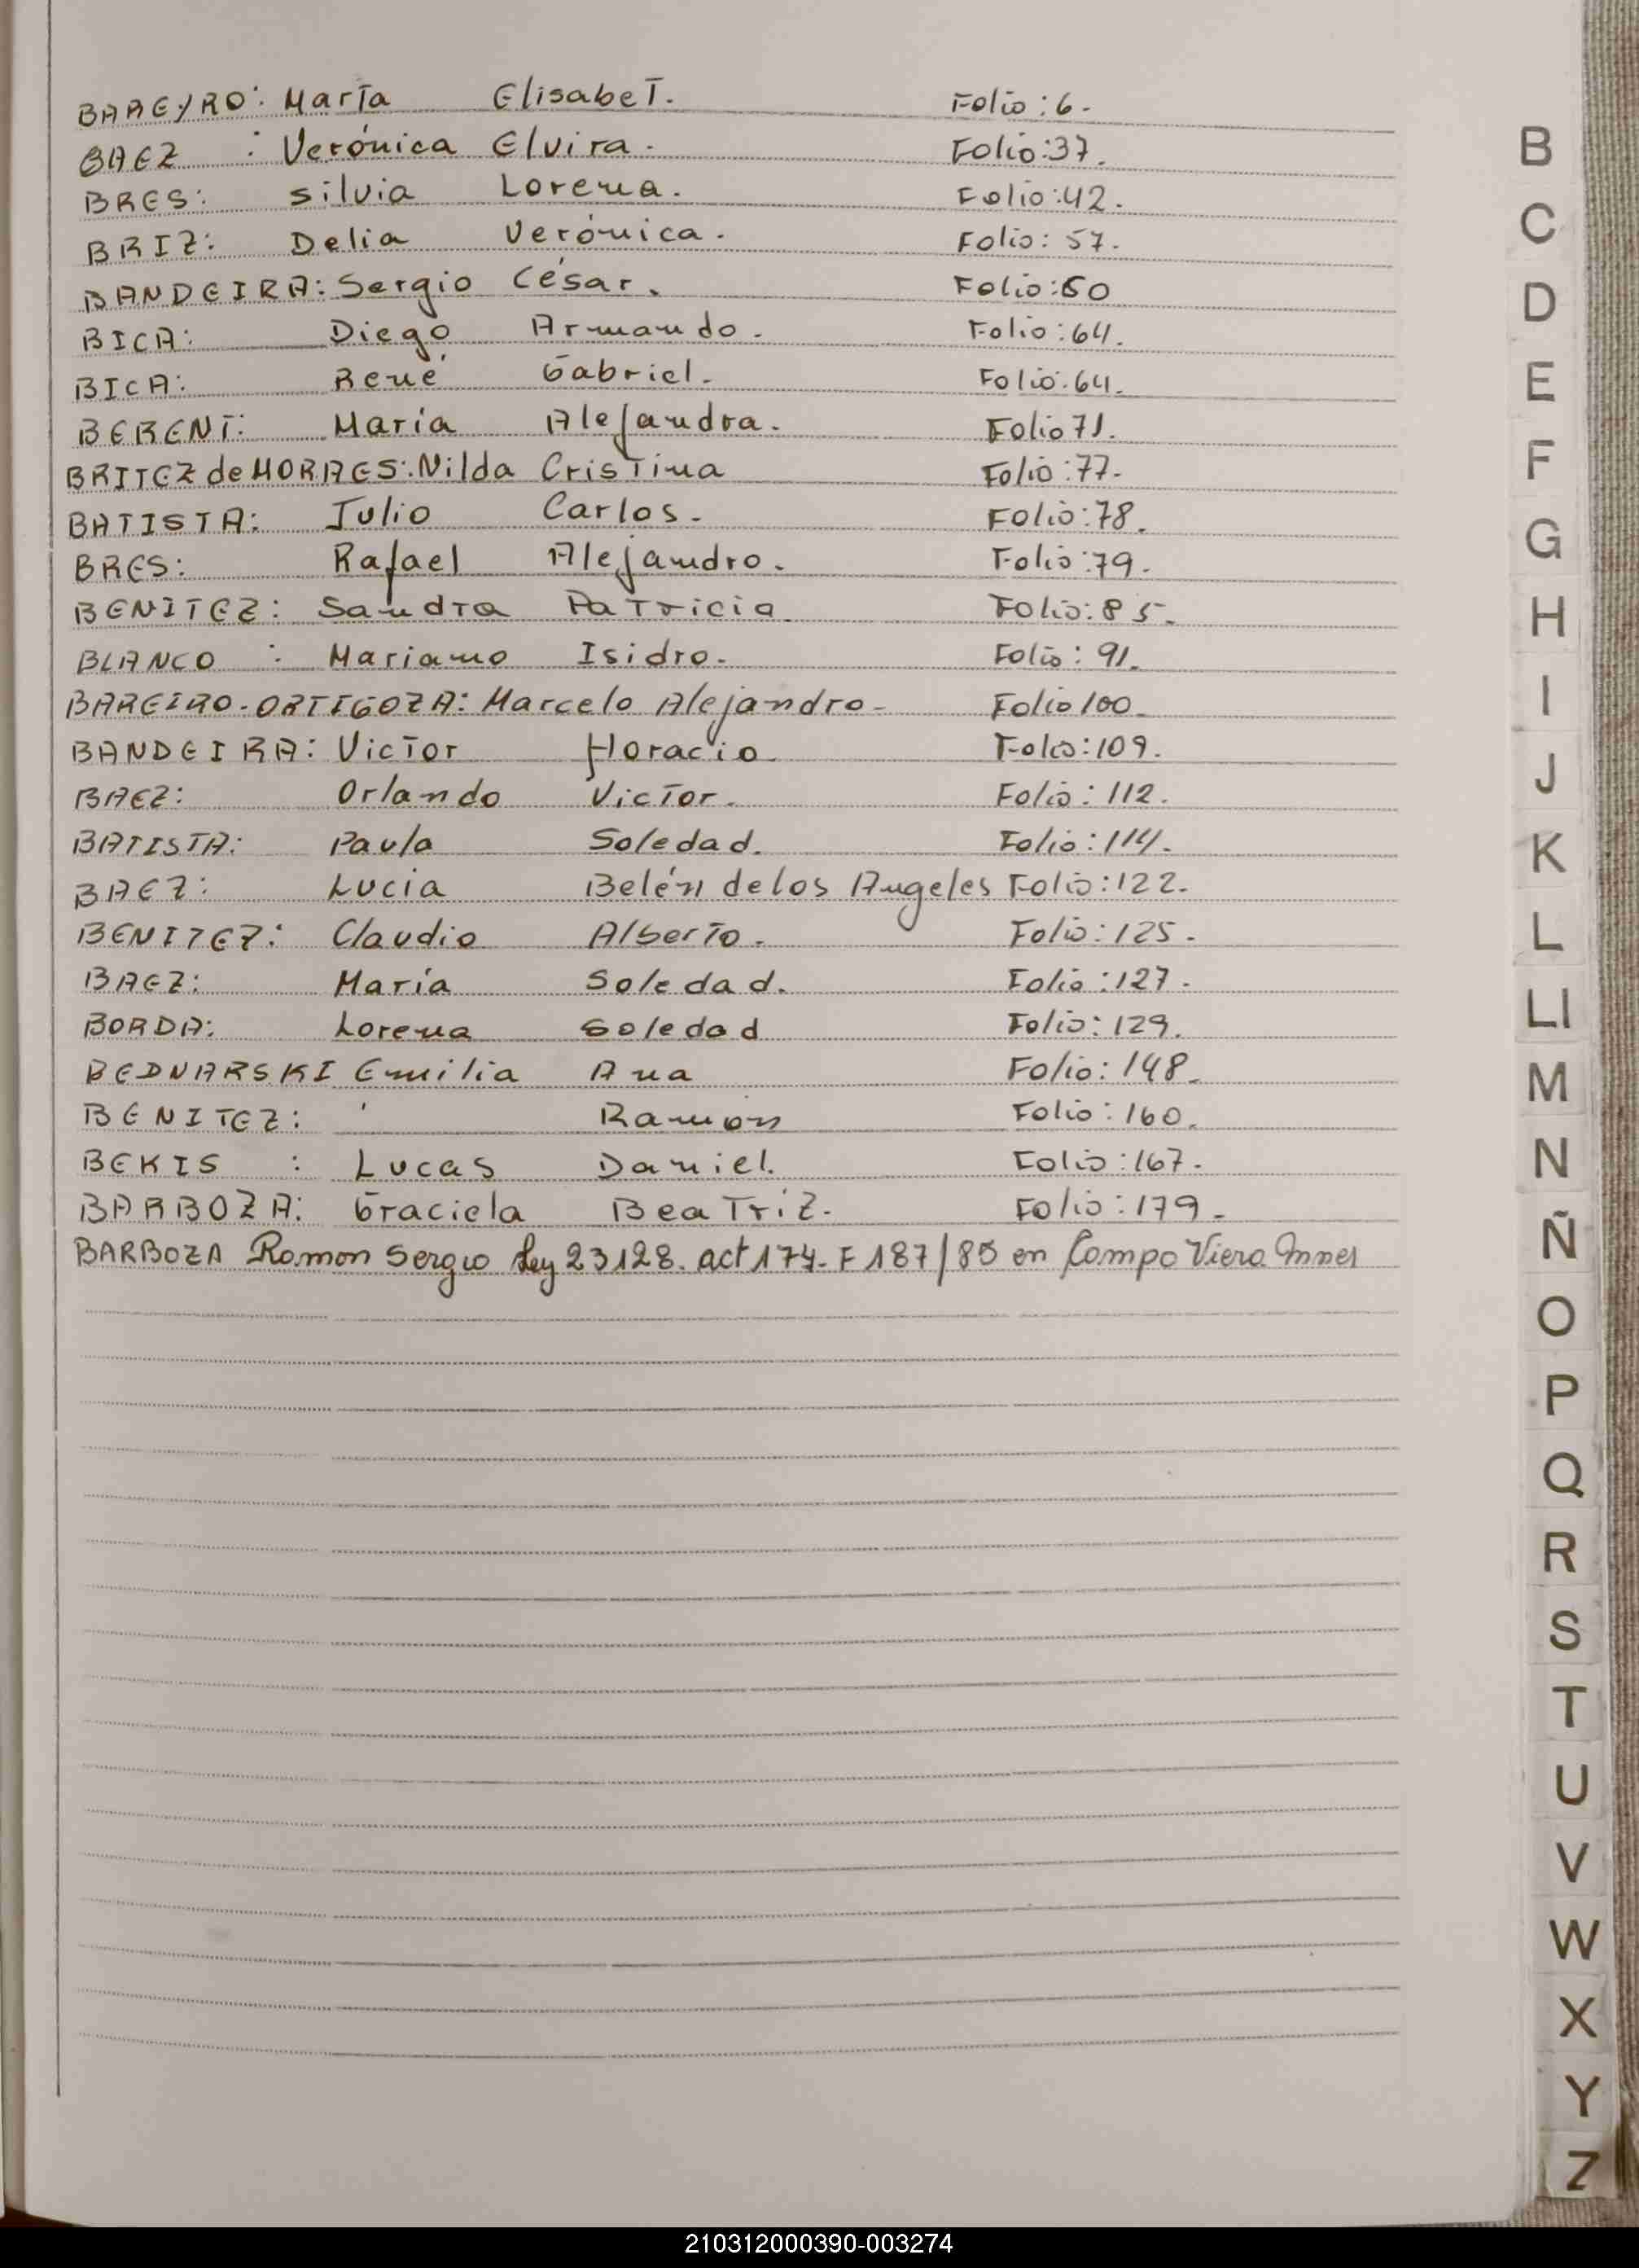 BAREYRO: María Elisabet. Folio: 6.
BAEZ : Verónica Elvira. Folio: 37.
BRES: Silvia Lorena. Folio: 42.
BRIZ: Delia Verónica. Folio: 57.
BANDEIRA: Sergio César. Folio: 60
BICA: Diego Armando. Folio: 64.
BICA: René Gabriel. Folio: 64.
BERENT: María Alejandra. Folio 71.
BRITEZ de MORAES: Nilda Cristina Folio: 77.
BATISTA: Julio Carlos. Folio: 78.
BRES: Rafael Alejandro. Folio: 79.
BENITEZ: Sandra Patricia Folio: 85.
BLANCO : Mariano Isidro. Folio: 91.
BAREIRO-ORTIGOZA: Marcelo Alejandro- Folio 100.
BANDEIRA: Victor Horacio Folio: 109.
BAEZ: Orlando Victor. Folio: 112.
BATISTA: Paula Soledad. Folio: 114.
BAEZ: Lucia Belén de los Angeles Folio: 122.
BENITEZ: Claudio Alberto. Folio: 125.
BAEZ: María Soledad. Folio: 127.
BORDA: Lorena Soledad Folio: 129.
BEDNARSKI Emilia Ana Folio: 148.
BENITEZ: Ramón Folio: 160.
BEKIS : Lucas Daniel. Folio: 167.
BARBOZA: Graciela Beatriz. Folio: 179.
BARBOZA Ramon Sergio Ley 23128. act 174- F 187/85 en Campo Viera
B
C
D
E
F
G
H
I
J
K
L
Ll
M
N
Ñ
O
P
Q
R
S
T
U
V
W
X
Y
Z
210312000390-003274